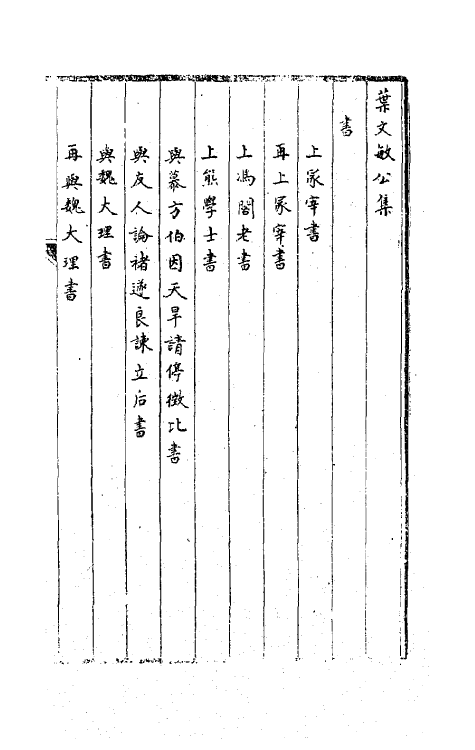 葉文敏公集
書
上冢宰書
再上冢宰書
上馮閣老書
上熊學士書
與慕方伯因天旱請停徵比書
與友人論褚遂良諫立后書
與魏大理書
再與魏大理書